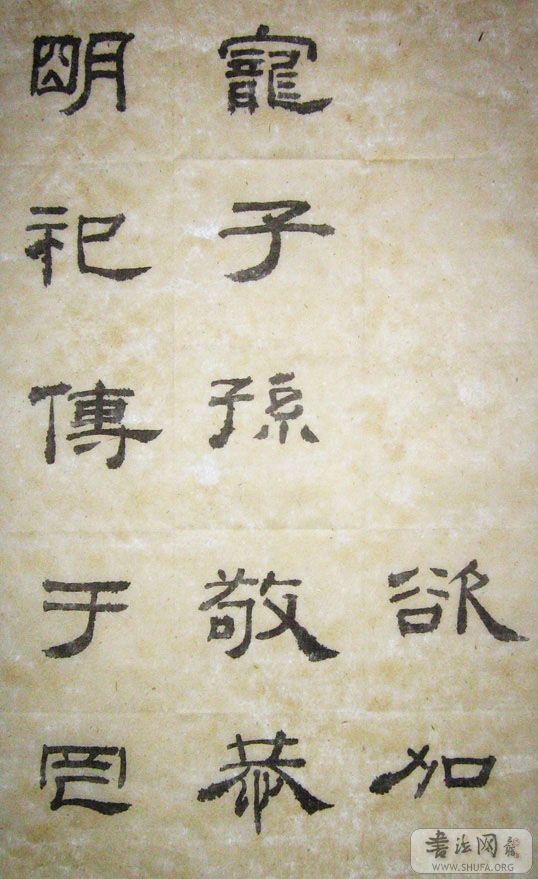 欲加
寵子孫敬恭
明祀傳于罔
書法网
WWW.SHUFA.ORG